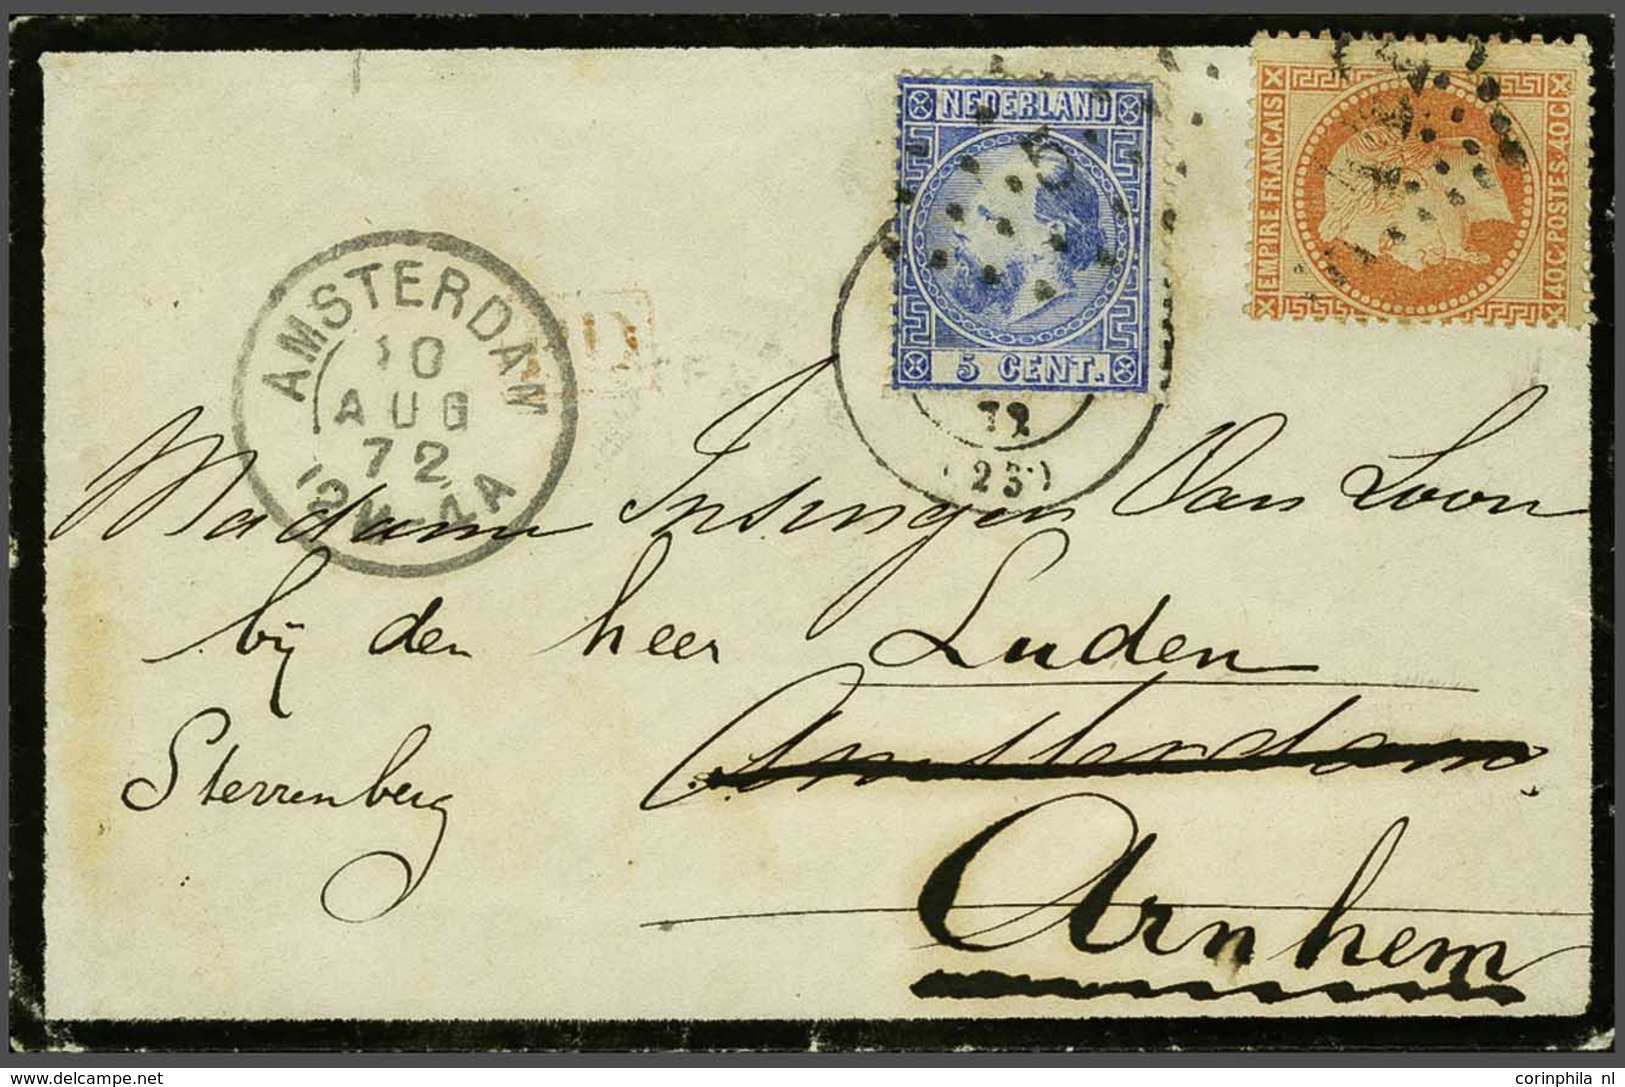 NEDERLAND
5
5 CENT.
EMPIRE FRANCAIS
40 C. POSTES. 40 C
AMSTERDAM
10
AUG
72
72
(23)
Madame Insinger Van Loon
bij den heer Luden
Sterrenberg
Amsterdam
Arnhem
delcampe.net
corinphila nl